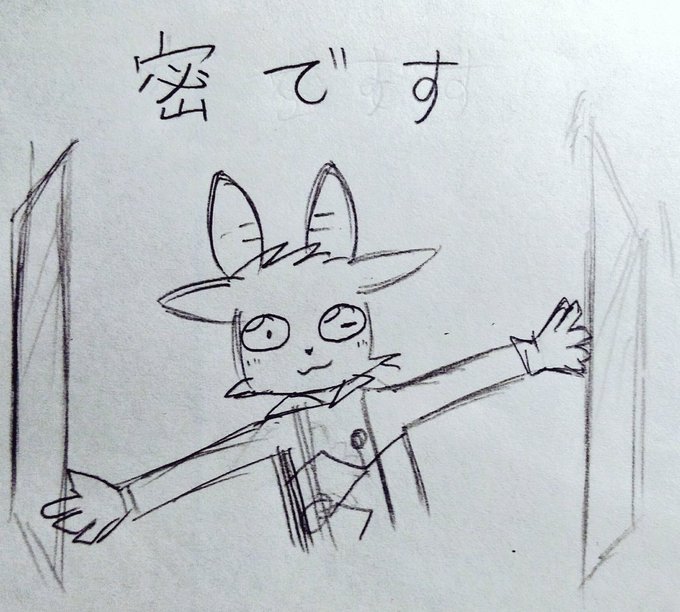 密です